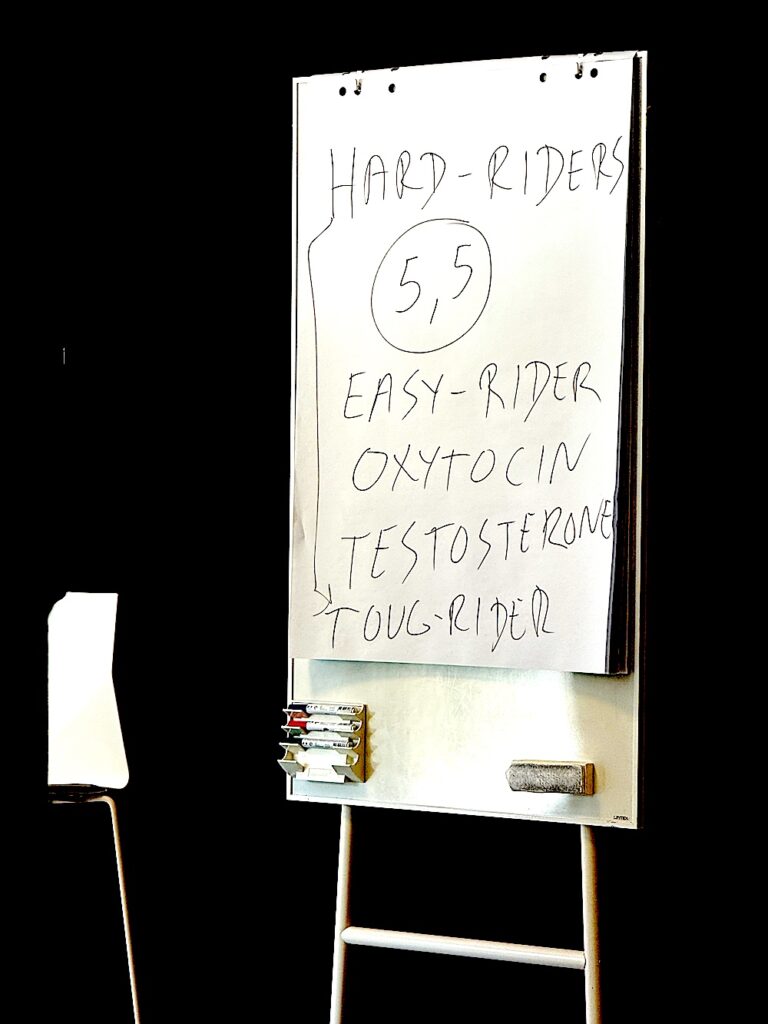 HARD-RIDERS
5,5
EASY-RIDER
OXYTOCIN
TESTOSTERONE
TOUG-RIDER